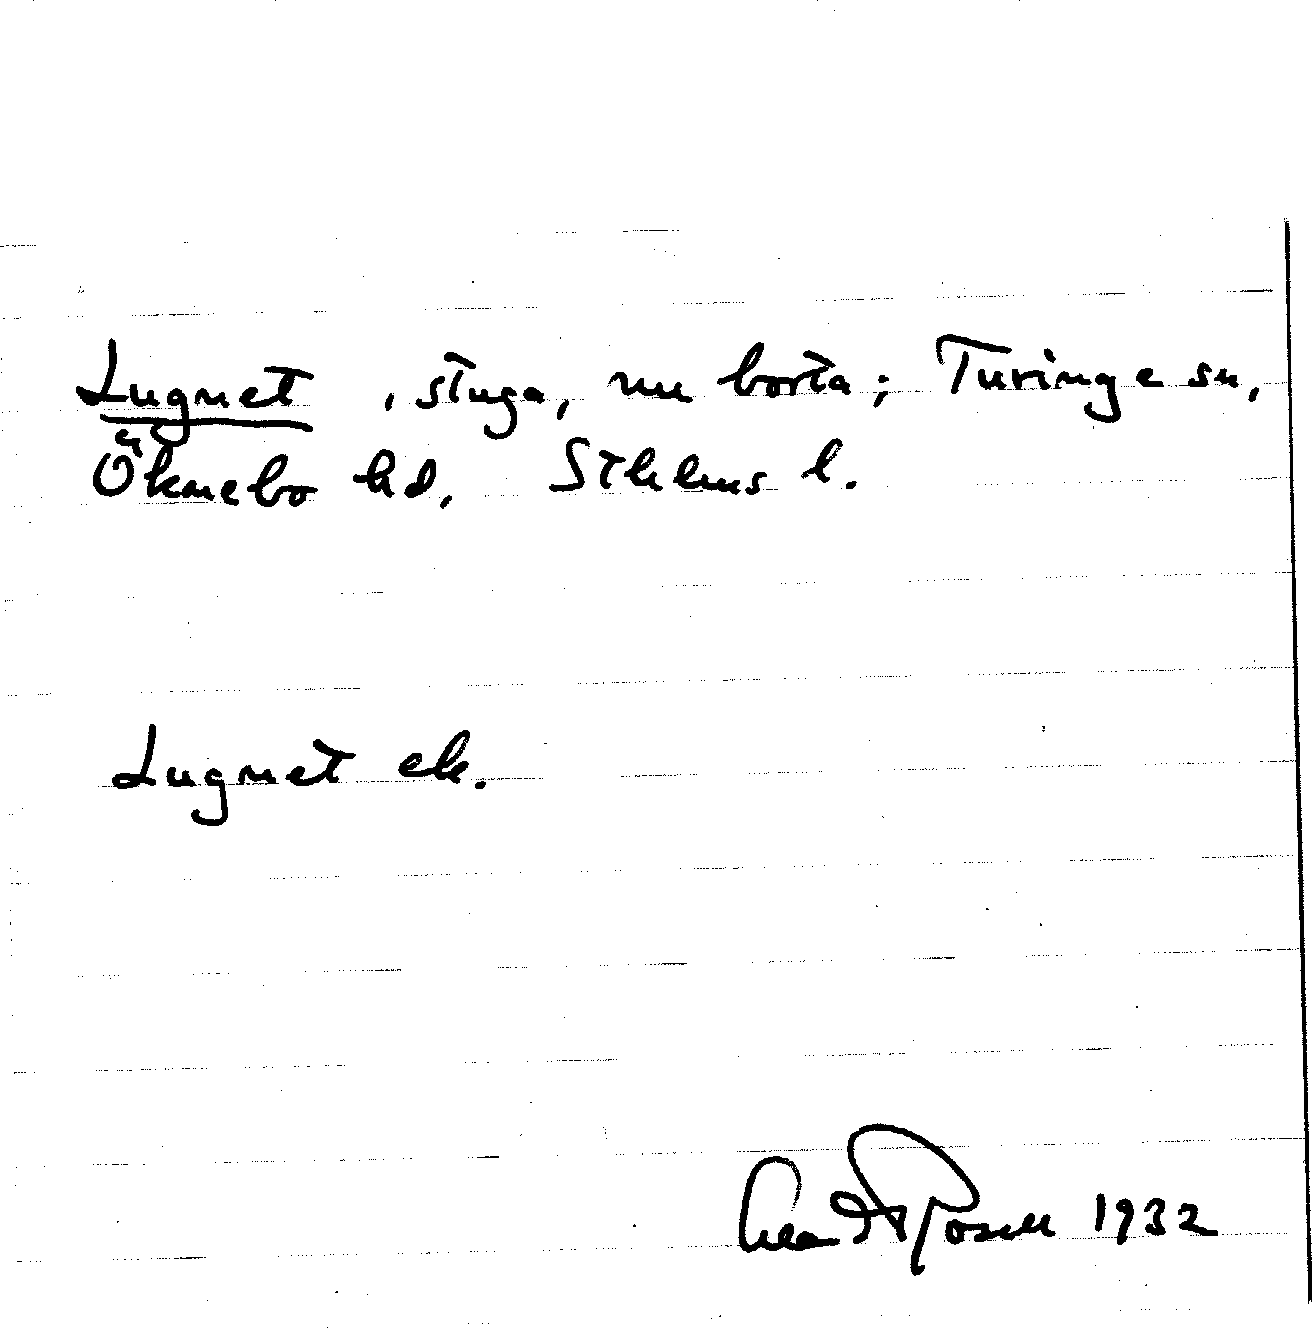 Lugnet, stuga, nu borta; Turinge sn,
Öknebo hd, Sthlms l.
Lugnet ek.
1932